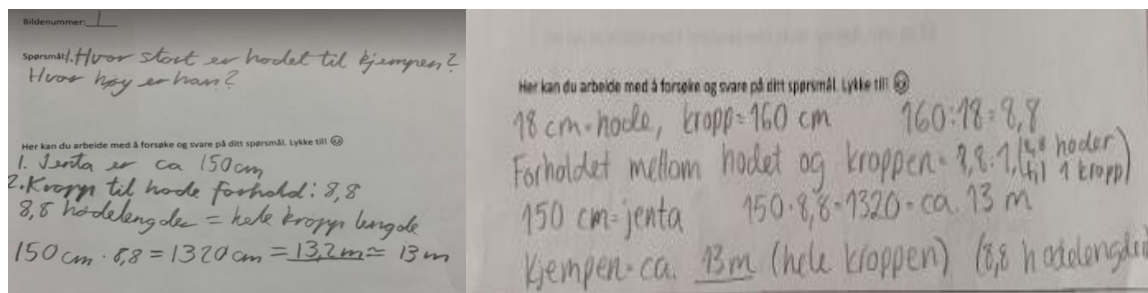 Bildenummer: 1
Spørsmål: 1. Hvor stort er hodet til kjempen?
Hvor høy er han?
Her kan du arbeide med å forsøke og svare på ditt spørsmål. Lykke til! ☺
1. Jenta er ca 150cm
2. Kropp til hode forhold: 8,8
8,8 hodelengder = hele kropps lengde
150 cm · 8,8 = 1320 cm = 13,2 m ≈ 13 m
Her kan du arbeide med å forsøke og svare på ditt spørsmål. Lykke til! ☺
18 cm = hode, kropp = 160 cm 160:18 = 8,8
Forholdet mellom hodet og kroppen = 8,8:1, (8,8 hoder til 1 kropp)
150 cm = jenta 150·8,8 = 1320 = ca. 13 m
Kjempen = ca. 13m (hele kroppen) (8,8 hodelengder